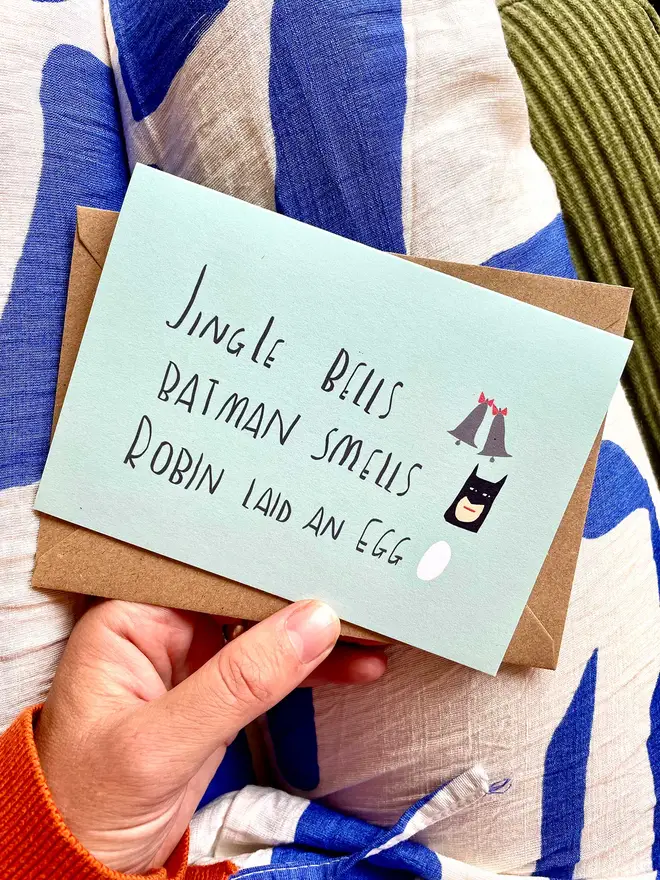 JINGLE BELLS
BATMAN SMELLS
ROBIN LAID AN EGG